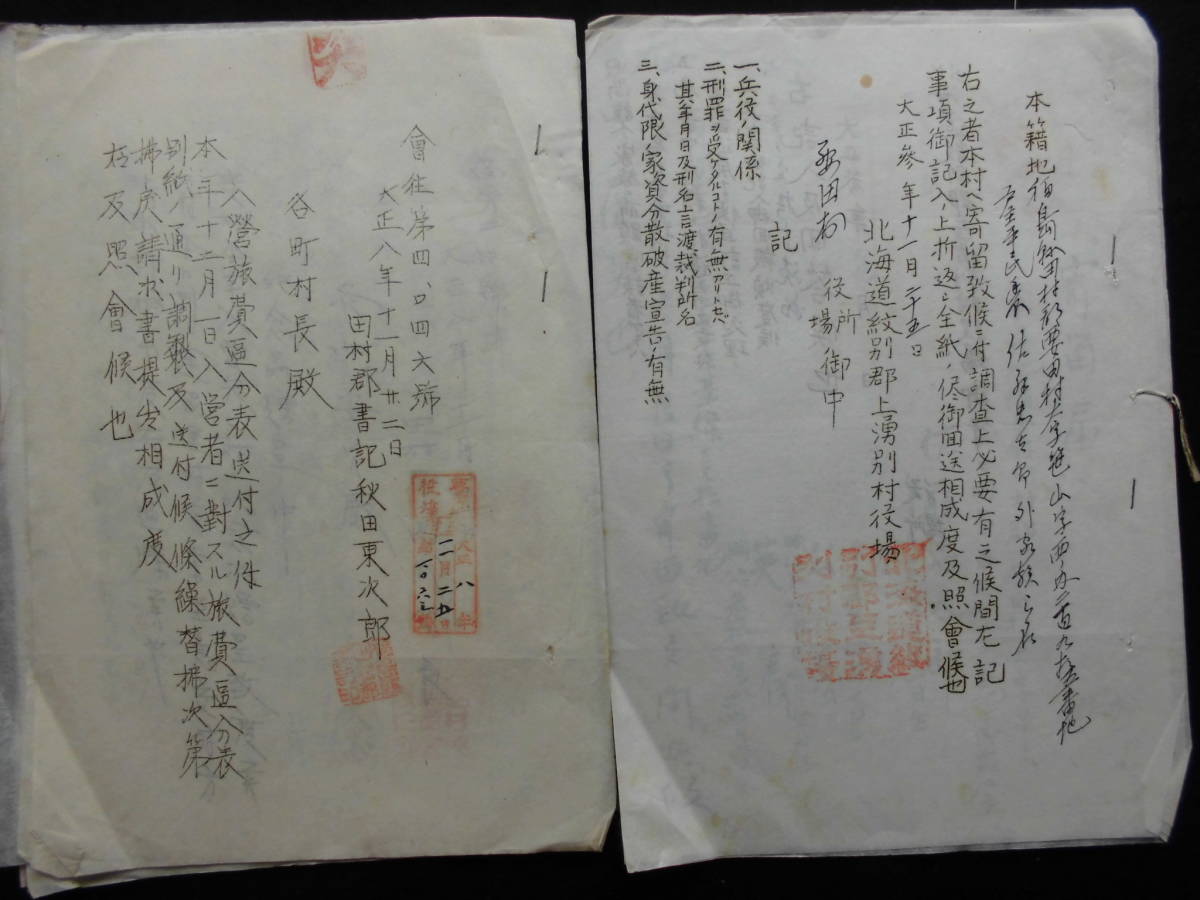 本籍地福島縣田村郡要田村大字笹山字西
戸主平民農 佐 外家族
右之者本村ヘ寄留致候ニ付調査上必要有之候間左記
事項御記入ノ上折返シ全紙ノ侭御回送相成度及照會候也
大正參年十一月二十五日
北海道紋別郡上湧別村役場
要田村 役所場 御中
記
一、兵役ノ関係
二、刑罪ヲ受ケタルコトノ有無アリトセバ
其年月日及刑名言渡裁判所名
三、身代限家資分散破産宣告ノ有無
會往第四、〇四六號
大正八年十一月廿二日
田村郡書記秋田東次郎
各町村長殿
入營旅費區分表送付之件
本年十二月一日入営者ニ對スル旅費區分表
別紙ノ通リ調製及送付候條繰替拂次第
拂戻請求書提出相成度
右及照會候也
大正八年
二月二五日